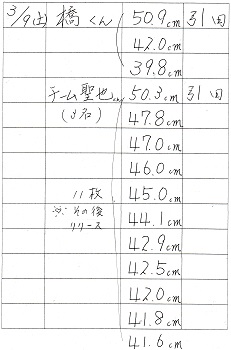 3/9(土) 橋くん 50.9cm 引田
42.0cm
39.8cm
チーム聖也 50.3cm 引田
(3名) 47.8cm
47.0cm
46.0cm
11枚 45.0cm
※その後 44.1cm
リリース 42.9cm
42.5cm
42.0cm
41.8cm
41.6cm